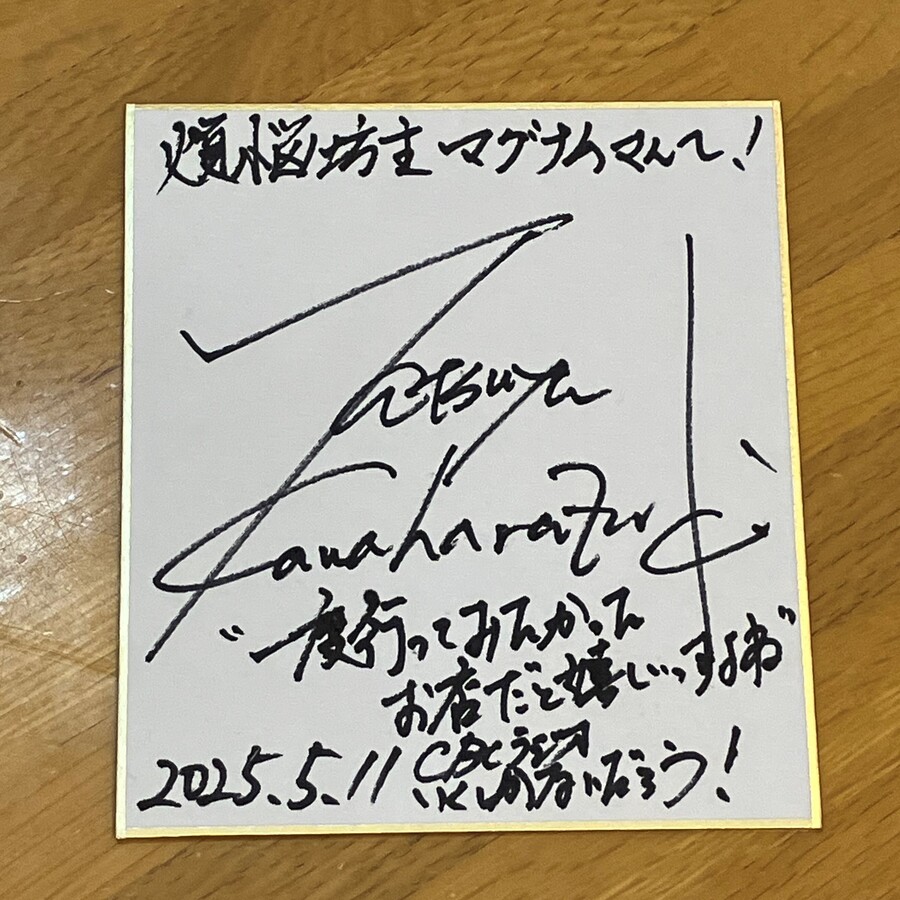 煩悩坊主 マグナムさんへ!
Tatsuya
Kawaharazuka
"一度行ってみたかった
お店だと嬉しいっすよね"
2025.5.11 CBCラジオ
いくしかないだろう!